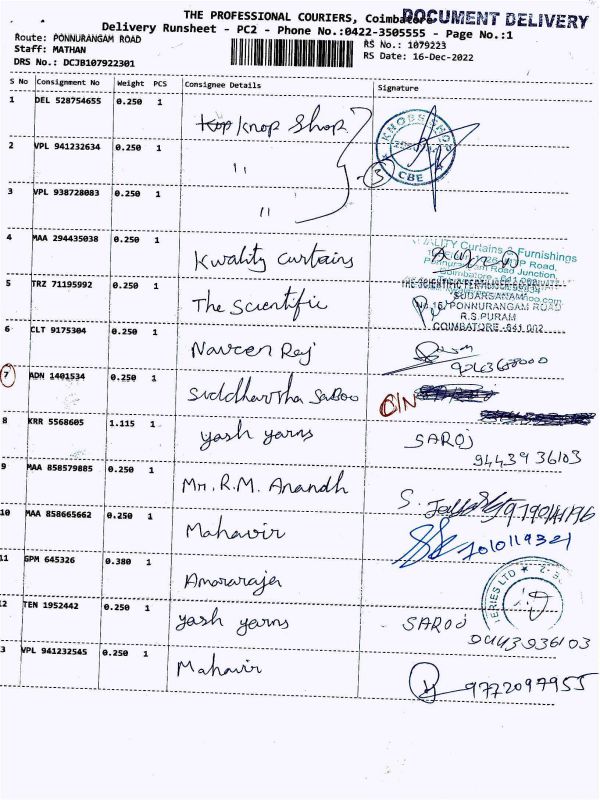 THE PROFESSIONAL COURIERS, Coimbatore
DOCUMENT DELIVERY
Delivery Runsheet - PC2 - Phone No.:0422-3505555 - Page No.:1
Route: PONNURANGAM ROAD
RS No.: 1079223
Staff: MATHAN
RS Date: 16-Dec-2022
DRS No.: DCJB107922301
S No Consignment No Weight PCS Consignee Details Signature
1 DEL 528754655 0.250 1 Knop Shop
KNOBS SHOP
CBE
2 VPL 941232634 0.250 1 "
3
3 VPL 938728083 0.250 1 "
4 MAA 294435038 0.250 1 Kwality Curtains
Curtains & Furnishings
Road Junction,
5 TRZ 71195992 0.250 1 The Scientific
SUDARSANAM
PONNURANGAM ROAD
R.S.PURAM
COIMBATORE -641 002
6 CLT 9175304 0.250 1 Naveen Raj
7 ADN 1401534 0.250 1 Siddharstha Saboo C/N
8 KRR 5568605 1.115 1 yash yarns SAROJ
9443936103
9 MAA 858579885 0.250 1 Mr. R.M. Anandh
10 MAA 858665662 0.250 1 Mahavir 7010119321
11 GPM 645326 0.380 1 Amararaja
ERIES LTD
12 TEN 1952442 0.250 1 yash yarns SAROJ
9443936103
3 VPL 941232545 0.250 1 Mahavir 9772097955